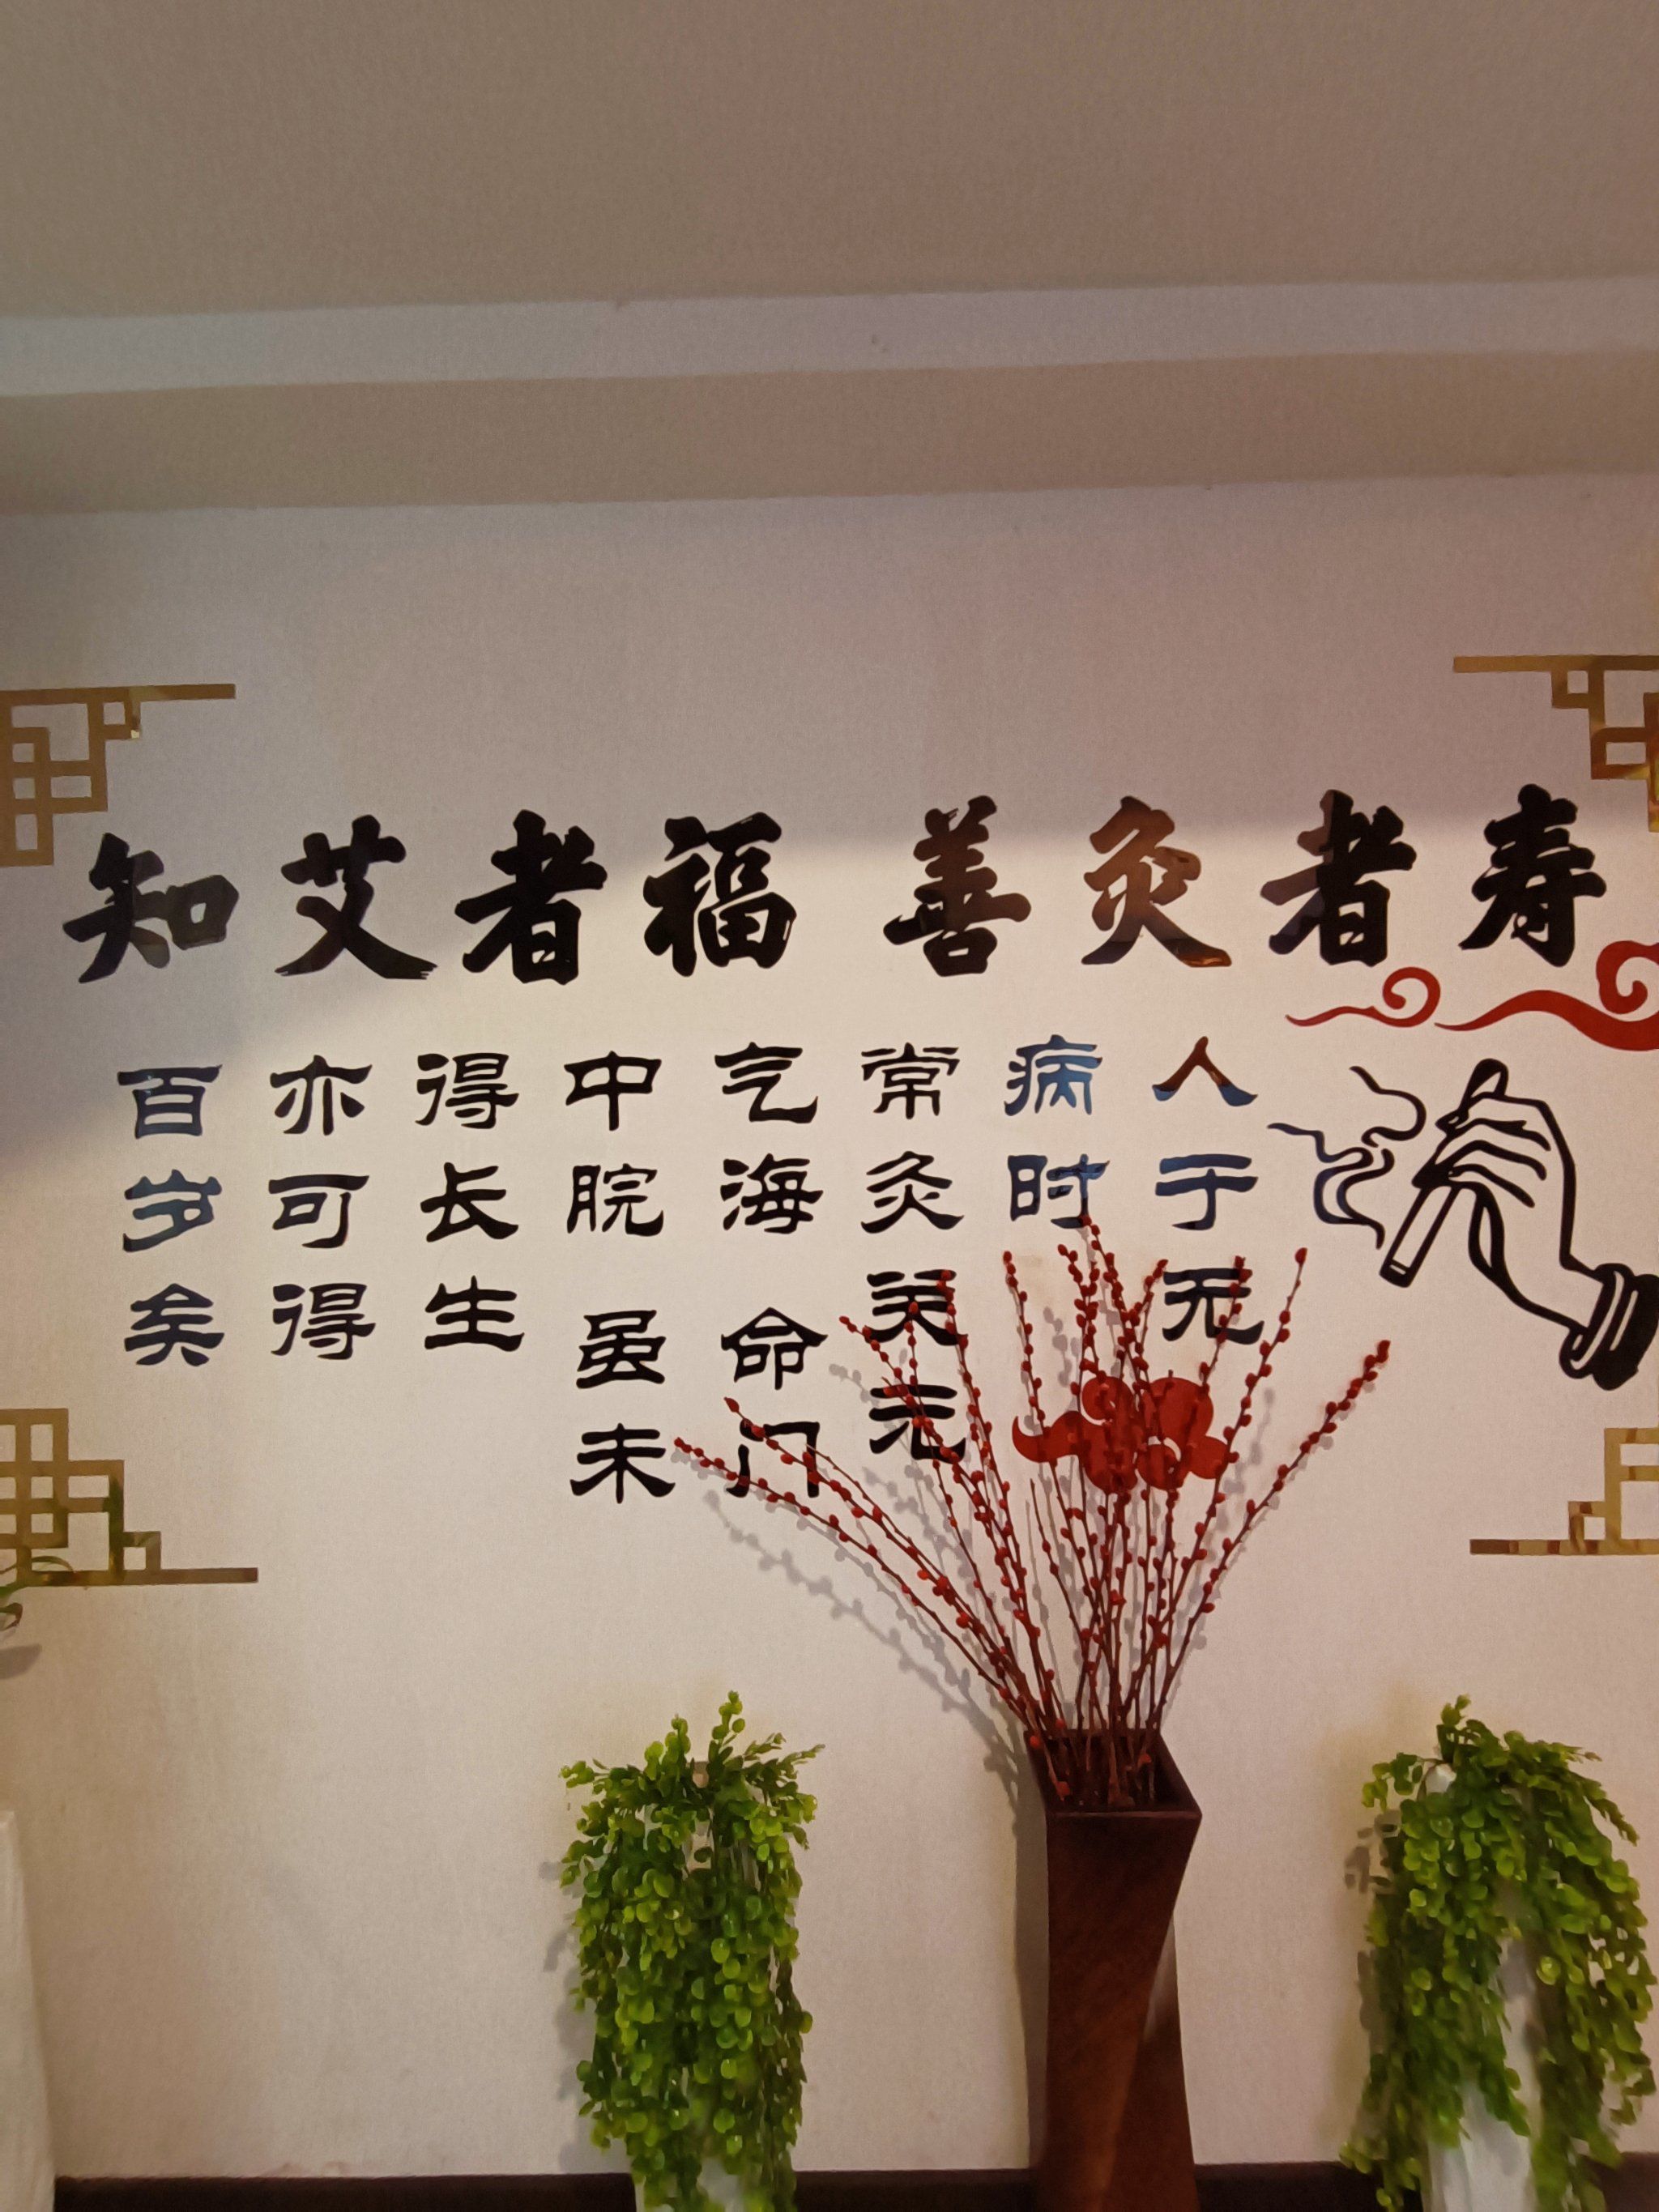 知艾者福 善灸者寿
人于无
病时
常灸关元
气海 命门
中脘 虽未
得长生
亦可得
百岁矣